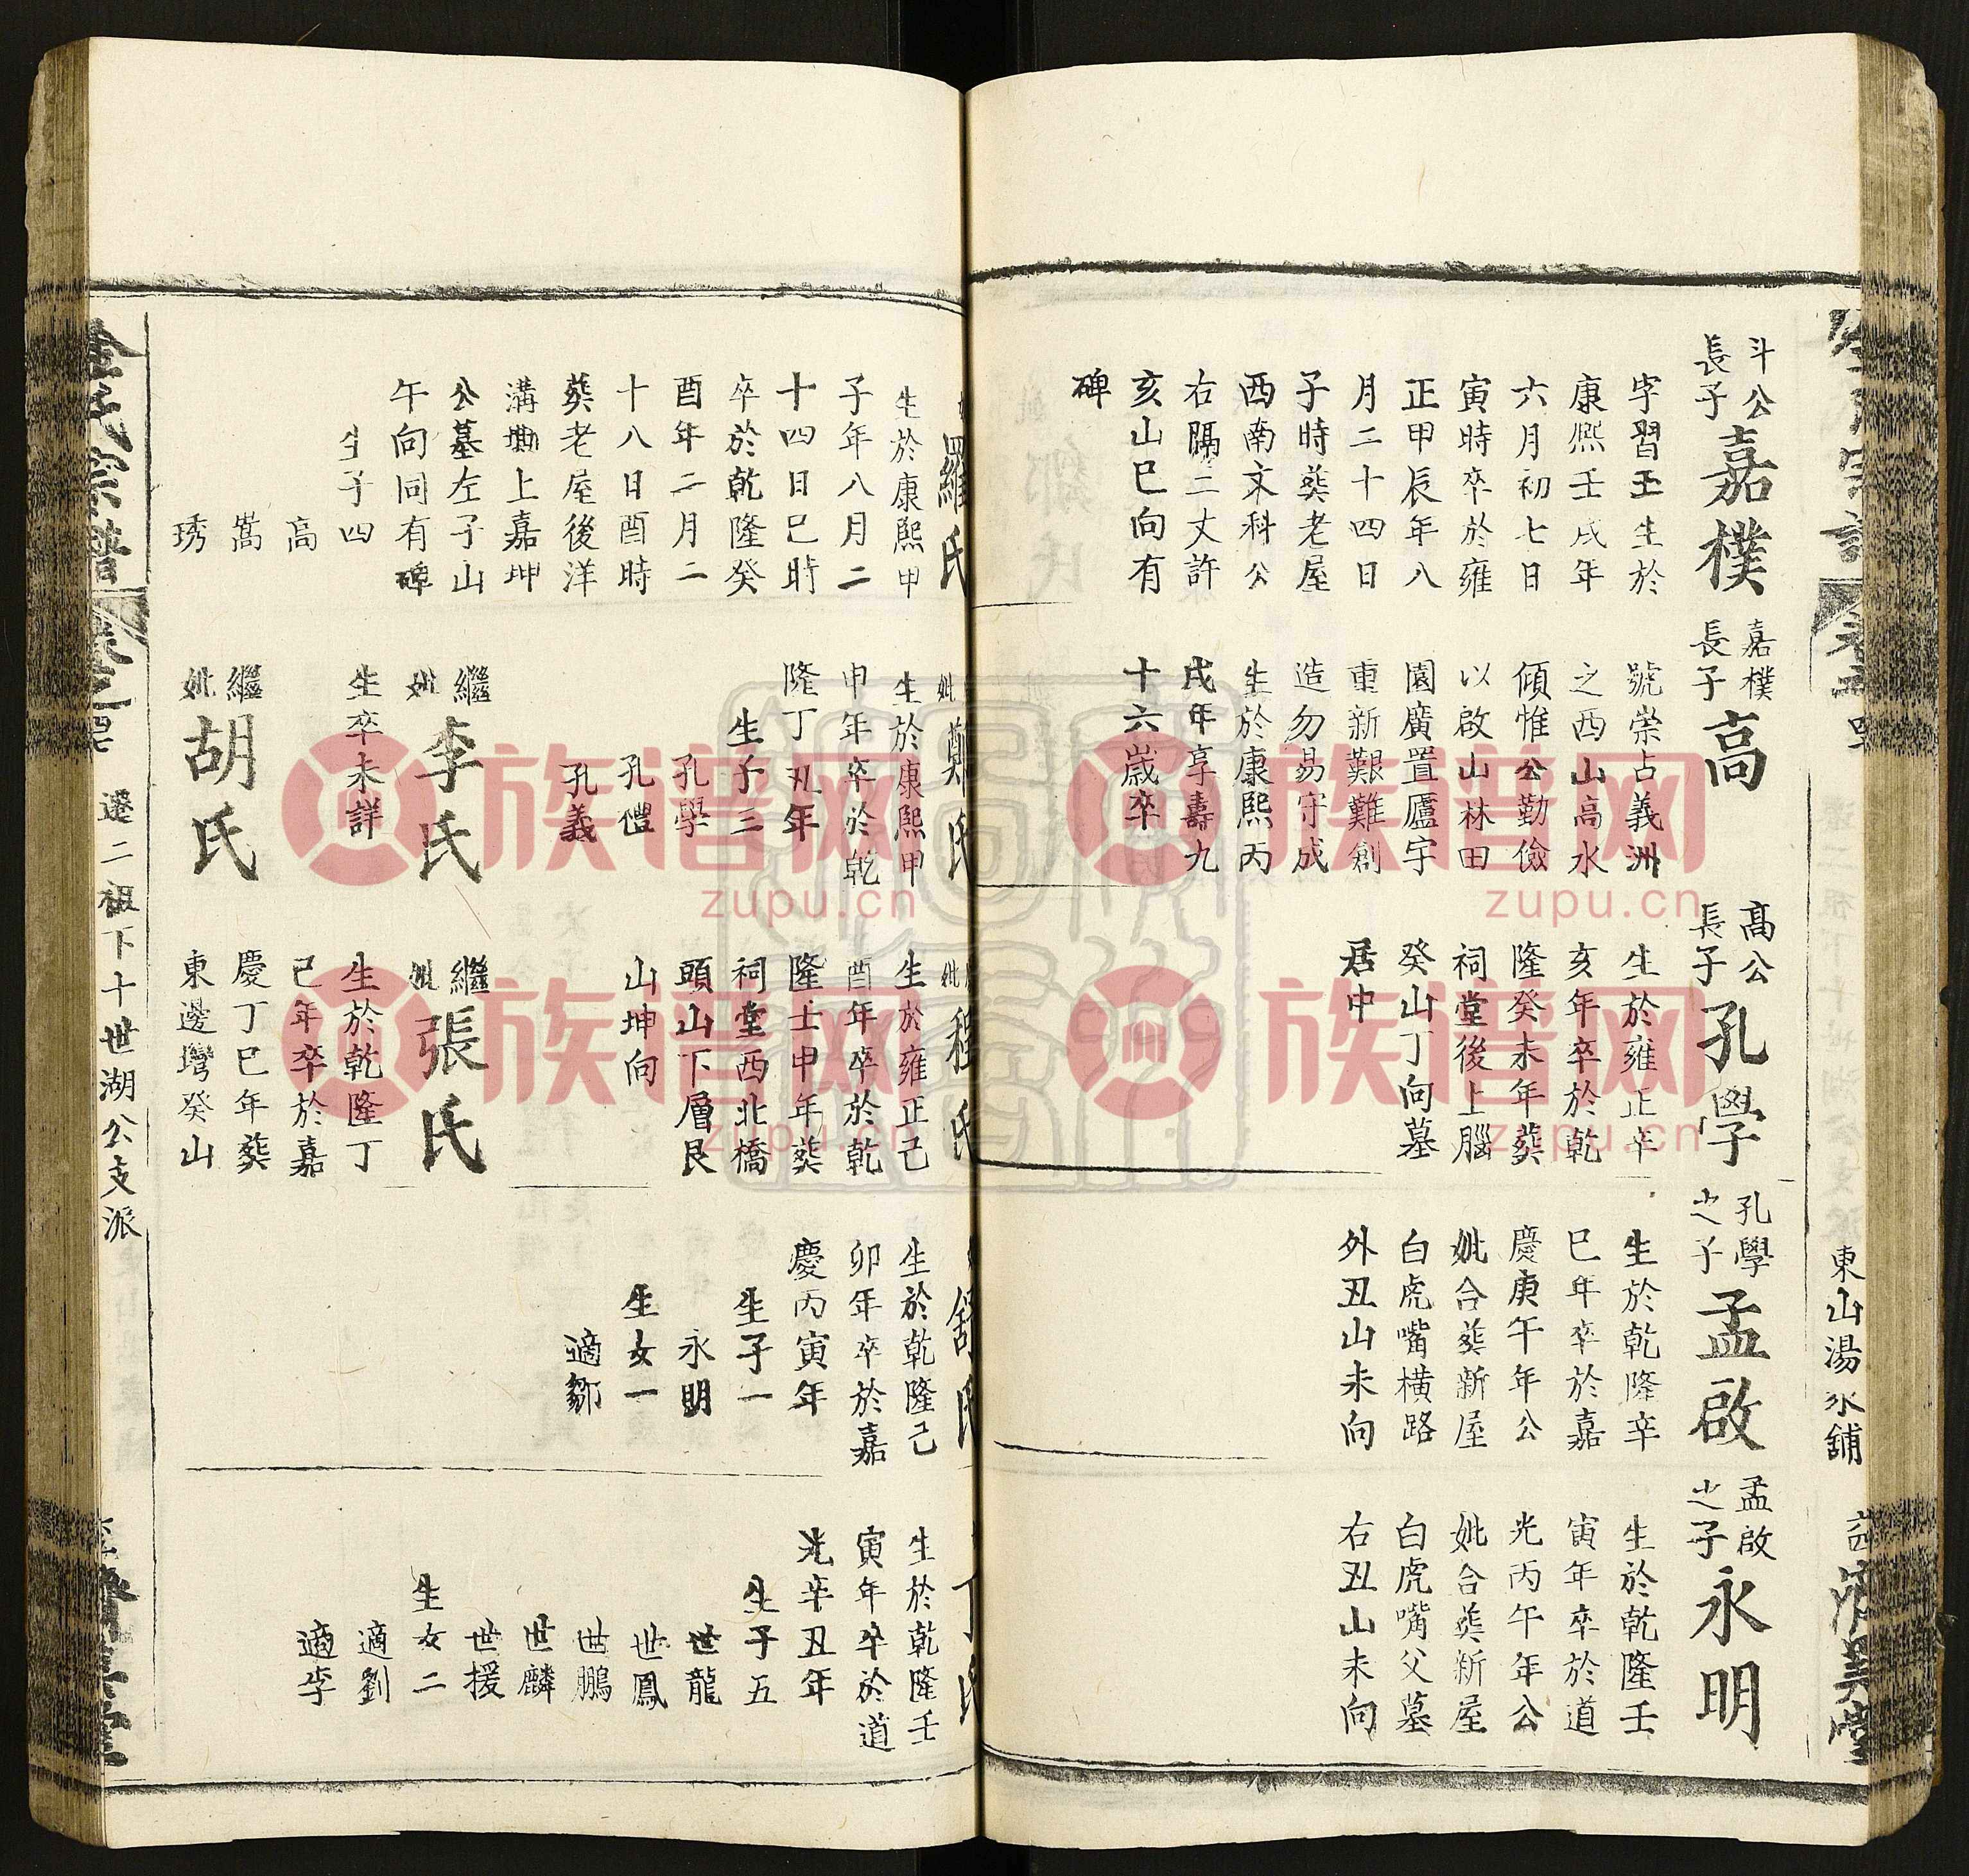 東山湯氷舖
斗公
長子
嘉樸
字習玉生於
康熙壬戌年
六月初七日
寅時卒於雍
正甲辰年八
月二十四日
子時葵老屋
西南文科公
右隔二丈許
亥山巳向有
碑
嘉樸
長子
高
號崇占義洲
之西山高水
傾惟公勤儉
以啟山林田
園廣置廬宇
重新艱難創
造勿易守成
生於康熙丙
戌年享壽九
十六歲卒
高公
長子
孔學
生於雍正辛
亥年卒於乾
隆癸未年葵
祠堂後上腦
癸山丁向墓
居中
孔學
之子
孟啟
生於乾隆辛
巳年卒於嘉
慶庚午年公
妣合葵新屋
白虎嘴橫路
外丑山未向
孟啟
之子
永明
生於乾隆壬
寅年卒於道
光丙午年公
妣合葵新屋
白虎嘴父墓
右丑山未向
羅氏
生於康熙甲
子年八月二
十四日巳時
卒於乾隆癸
酉年二月二
十八日酉時
葵老屋後洋
溝墈上嘉坤
公墓左子山
午向同有碑
生子四
高
嵩
琇
妣
鄭氏
生於康熙甲
申年卒於乾
隆丁丑年
生子三
孔學
孔禮
孔義
繼
妣
李氏
生卒未詳
繼
妣
胡氏
妣
程氏
生於雍正己
酉年卒於乾
隆士申年葵
祠堂西北橋
頭山下層艮
山坤向
繼
妣
張氏
生於乾隆丁
己年卒於嘉
慶丁巳年葵
東邊灣癸山
舒氏
生於乾隆己
卯年卒於嘉
慶丙寅年
生子一
永明
生女一
適鄒
丁氏
生於乾隆壬
寅年卒於道
光辛丑年
生子五
世龍
世鳳
世鵬
世麟
世援
生女二
適劉
適李
金氏宗譜
遷二祖下十世湖公支派
族谱网
zupu.cn
族谱网
zupu.cn
族谱网
zupu.cn
族谱网
zupu.cn